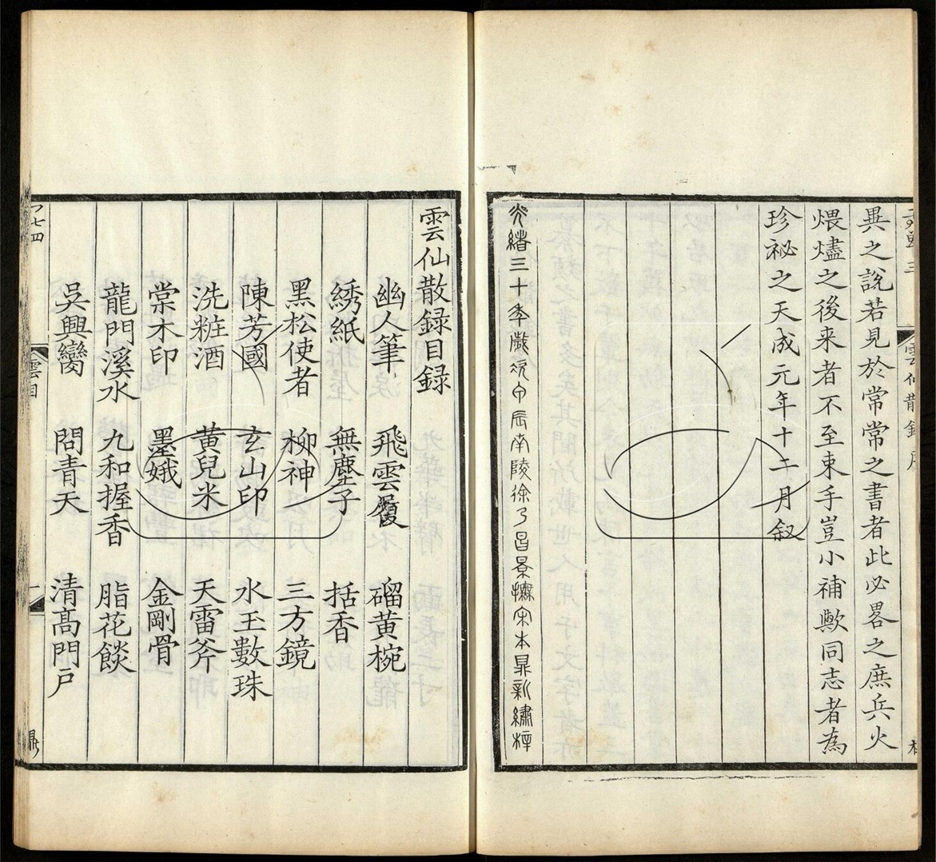 異之說若見於常常之書者此必畧之庶兵火
煨燼之後来者不至束手豈小補歟同志者為
珍祕之天成元年十二月叙
光緒三十年歲在甲辰南陵徐乃昌景橅宋本畢新繡梓
雲仙散錄序
雲仙散録目録
幽人筆 飛雲履 磂黃椀
綉紙 無塵子 括香
黑松使者 柳神 三方鏡
陳芳國 玄山印 水玉數珠
洗粧酒 黃兒米 天雷斧
棠木印 墨娥 金剛骨
龍門溪水 九和握香 脂花餤
吳興臠 問青天 清髙門戸
雲目